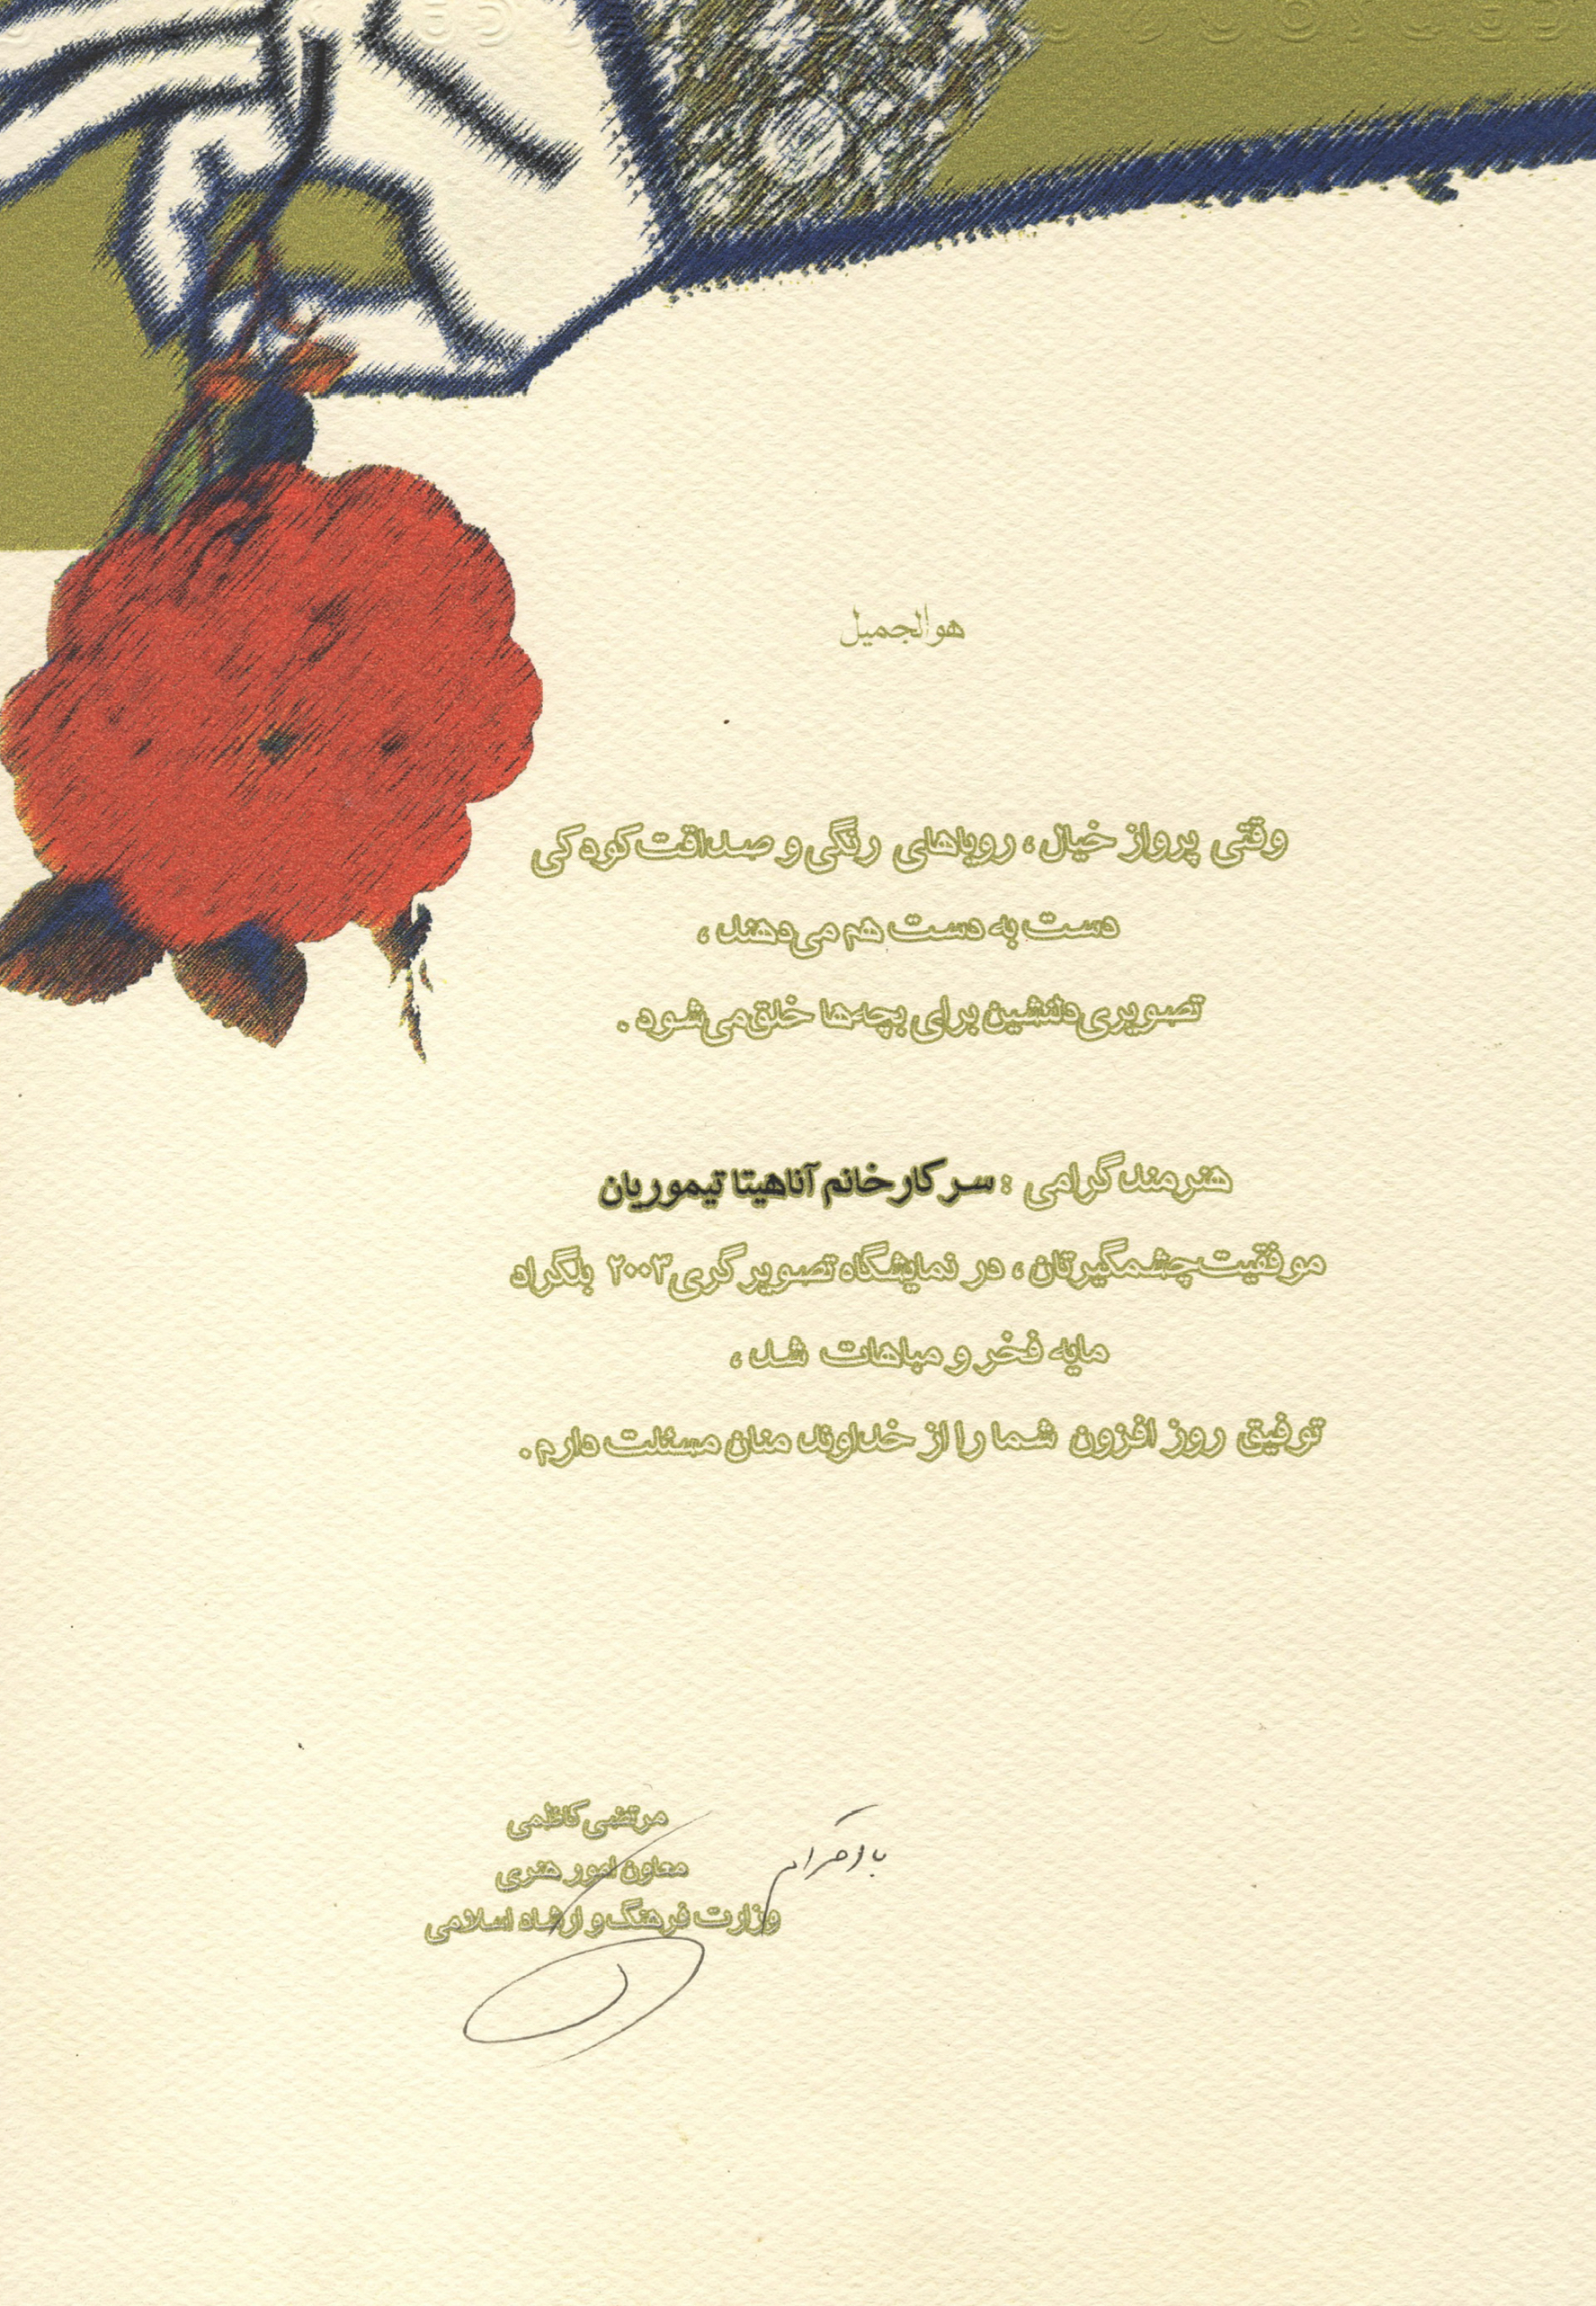 هوالجمیل
وقتی پرواز خیال ، رویاهای رنگی و صداقت کودکی
دست به دست هم می‌دهند ،
تصویری دلنشین برای بچه‌ها خلق می‌شود .
هنرمند گرامی : سرکار خانم آناهیتا تیموریان
موفقیت چشمگیرتان ، در نمایشگاه تصویر گری ۲۰۰۳ بلگراد
مایه فخر و مباهات شد ،
توفیق روز افزون شما را از خداوند منان مسئلت دارم .
مرتضی کاظمی
معاون امور هنری
وزارت فرهنگ و ارشاد اسلامی